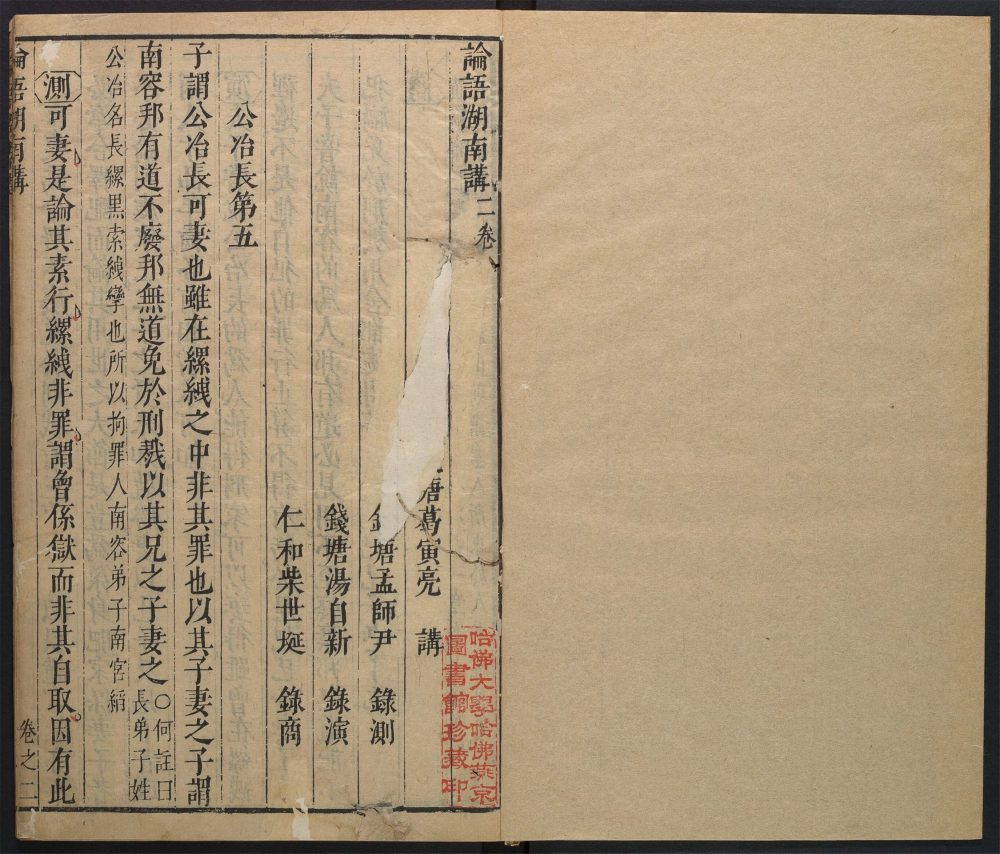 論語湖南講二卷
塘葛寅亮 講
塘孟師尹 錄測
錢塘湯自新 錄演
仁和柴世埏 錄商
哈佛大學哈佛燕京
圖書館珍藏印
公冶長第五
子謂公冶長可妻也雖在縲絏之中非其罪也以其子妻之子謂
南容邦有道不廢邦無道免於刑戮以其兄之子妻之
○何註曰
長弟子姓
公冶名長縲黑索絏攣也所以拘罪人南容弟子南宮縚
測可妻是論其素行縲絏非罪謂曾係獄而非其自取因有此
論語湖南講
卷之二